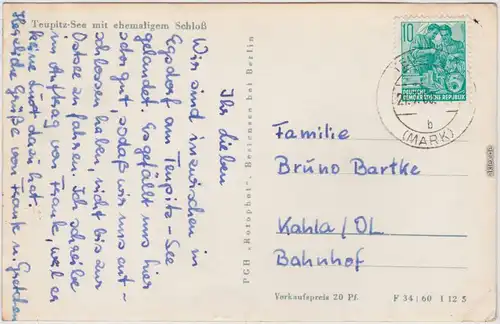 Teupitz-See mit ehemaligem Schloß
Ihr Lieben
Wir sind inzwischen in
Egsdorf am Teupitz-See
gelandet. Es gefällt uns hier
sehr gut, sodaß wir uns ent-
schlossen haben, nicht bis zur
Ostsee zu fahren. Ich schreibe
im Auftrag von Frank, weil er
keine Lust dazu hat.
Herzliche Grüße von Frank u. Gretchen
PGH „Rotophot", Bestensee bei Berlin
10
DEUTSCHE
DEMOKRATISCHE REPUBLIK
b
(MARK)
Familie
Bruno Bartke
Kahla/OL
Bahnhof
Verkaufspreis 20 Pf.
F 34/60 I 12 5